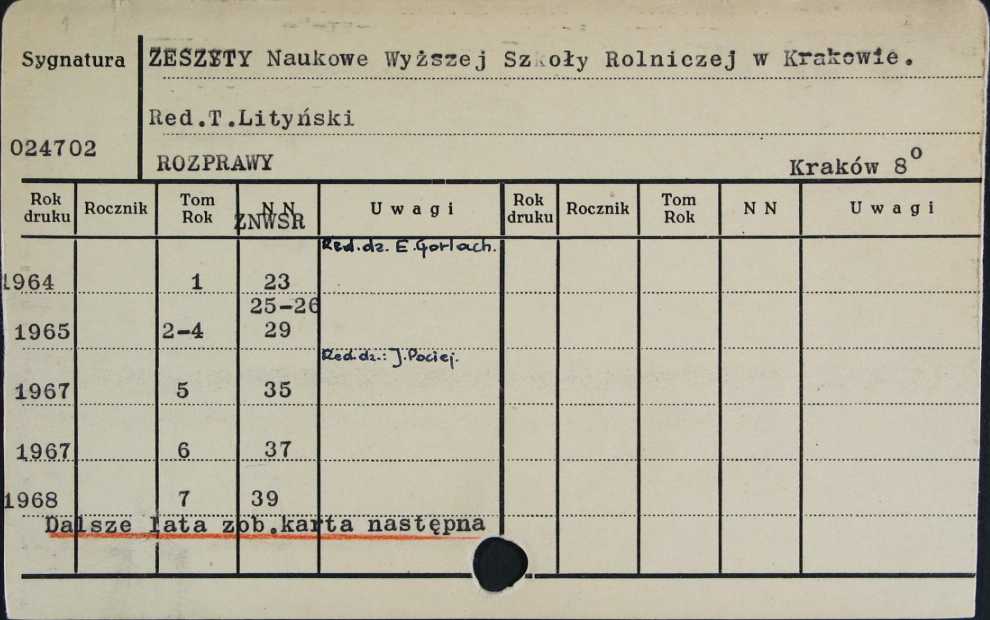 Sygnatura ZESZYTY Naukowe Wyższej Szkoły Rolniczej w Krakowie.
Red.T.Lityński
024702
ROZPRAWY Kraków 8°
Rok druku Rocznik Tom Rok N N U w a g i Rok druku Rocznik Tom Rok N N U w a g i
ZNWSR
Red.dz. E.Gorlach.
1964 1 23
25-26
1965 2-4 29
Red.dz.: J.Pociej.
1967 5 35
1967 6 37
1968 7 39
Dalsze lata zob.karta następna